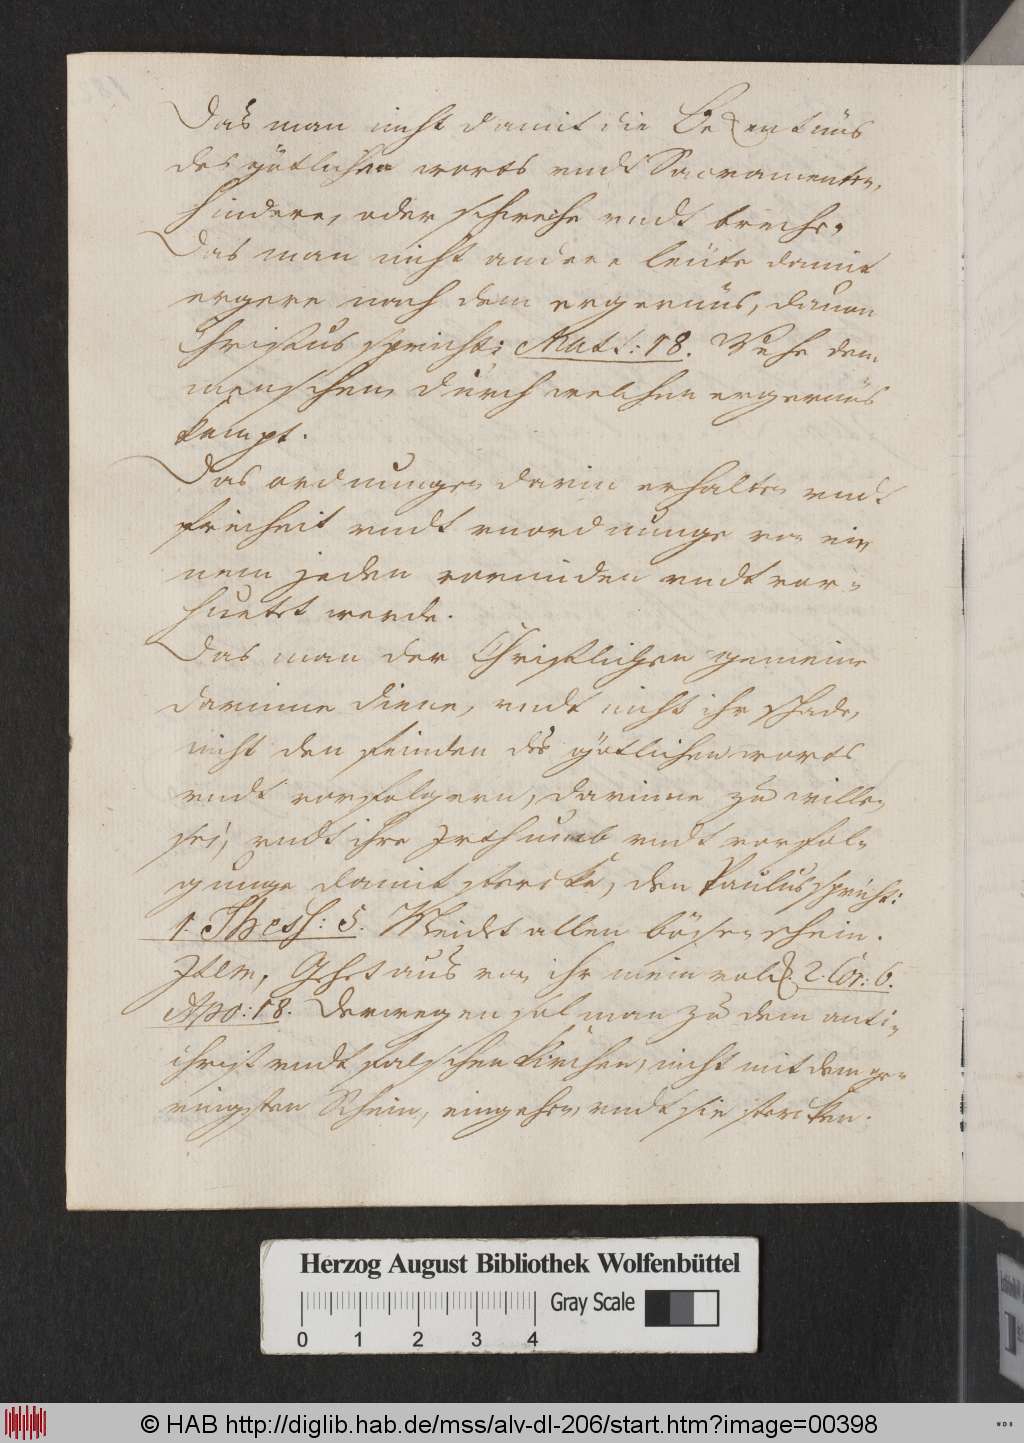 Das man nicht damit die Bekentnüs
des götlichen worts undt Sacramenten,
hindere, oder schweche undt breche.
Das man nicht andere leüte damit
ergere nach dem ergernüs, dauon
Christus spricht: Matt: 18. Wehe dem
menschen durch welchen ergernüs
kompt.
Das ordnungen darin erhalten undt
freiheit undt unordnunge von ei-
nem jeden vormiden undt vor-
huetet werde.
Das man der Christlichen gemeine
darinne diene, undt nicht ihr schade,
nicht den feinden des götlichen worts
undt vorfolgern, darinne zu willen
sei, undt ihre Irthumb undt vorfol-
gunge damit stercke, den Paulus spricht:
1. Thess: 5. Meidet allen bösen schein.
Item, Gehet aus von ihr mein volck. 2. Cor: 6.
Apo: 18. Derwegen sol man zu dem anti-
christ undt falschen kirchen, nicht mit dem ge-
ringsten Schein, eingehen undt sie stercken.
Herzog August Bibliothek Wolfenbüttel
0 1 2 3 4
Gray Scale
© HAB http://diglib.hab.de/mss/alv-dl-206/start.htm?image=00398